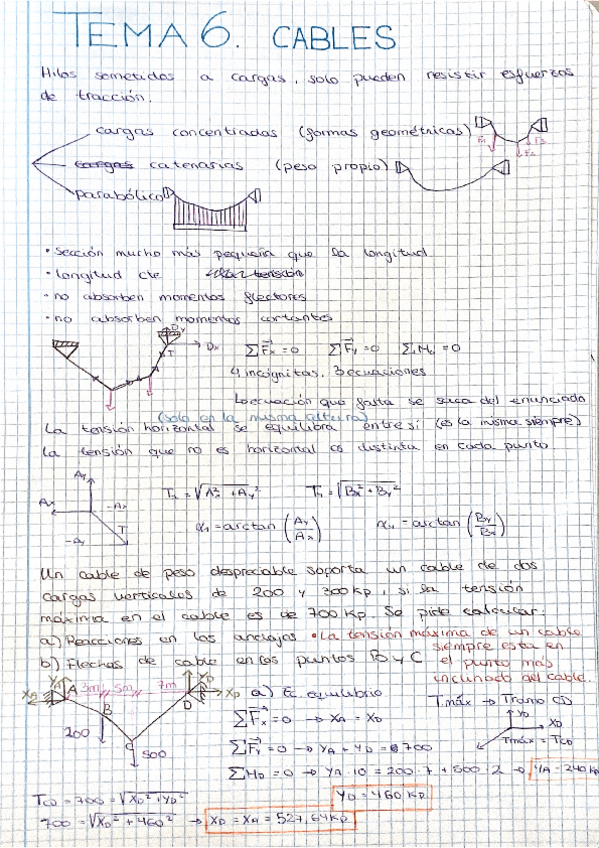 TEMA 6. CABLES
Hilos sometidos a cargas, solo pueden resistir esfuerzos
de tracción.
cargas concentradas (formas geométricas)
F1 F2 F3
cargas catenarias (peso propio)
parabólico
· Sección mucho más pequeña que la longitud
· longitud cte
· no absorben momentos flectores
· no absorben momentos cortantes
Dy
T
Dx
ΣFx = 0 ΣFy = 0 ΣMc = 0
4 incógnitas, 3 ecuaciones
ecuación que falta se saca del enunciado
(solo en la misma altura)
La tensión horizontal se equilibra entre sí (es la misma siempre)
La tensión que no es horizontal es distinta en cada punto
Ay
Ax -Ax
-Ay T
T1 = √Ax² + Ay² T4 = √Bx² + By²
α1 = arctan (Ay/Ax) α4 = arctan (By/Bx)
Un cable de peso despreciable soporta un cable de dos
cargas verticales de 200 y 300 Kp, si la tensión
máxima en el cable es de 700 Kp. Se pide calcular:
a) Reacciones en los anclajes · La tensión máxima de un cable
siempre esta en
b) Flechas de cable en los puntos B y C el punto más
inclinado del cable.
YA YD
XA A 3m 5m 7m D XD
B
200
C
500
a) Ec equilibrio
Tmáx → Tramo CD
ΣFx = 0 → XA = XD
YD
XD
Tmáx = TCD
ΣFy = 0 → YA + YD = 700
ΣMD = 0 → YA · 10 = 200 · 7 + 500 · 2 → YA = 240 Kp
YD = 460 Kp
TCD = 700 = √XD² + YD²
700 = √XD² + 460² → XD = XA = 527,64Kp